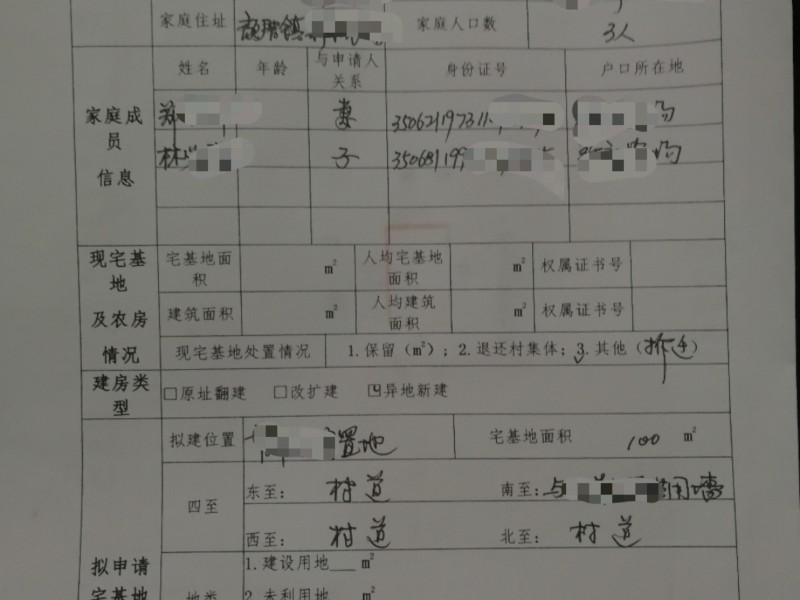 家庭住址 颜厝镇 家庭人口数 3人
姓名 年龄 与申请人关系 身份证号 户口所在地
家庭成员信息
郑 妻 35062197311
林 子 35068119
现宅基地及农房情况
宅基地面积 m² 人均宅基地面积 m² 权属证书号
建筑面积 m² 人均建筑面积 m² 权属证书号
现宅基地处置情况 1.保留（m²）；2.退还村集体；3.其他（拆迁）
建房类型 □原址翻建 □改扩建 ☑异地新建
拟建位置 置地 宅基地面积 100 m²
四至 东至： 村道 南至：与 围墙
西至： 村道 北至： 村道
拟申请宅基地
地类 1.建设用地___m²
2.未利用地 m²